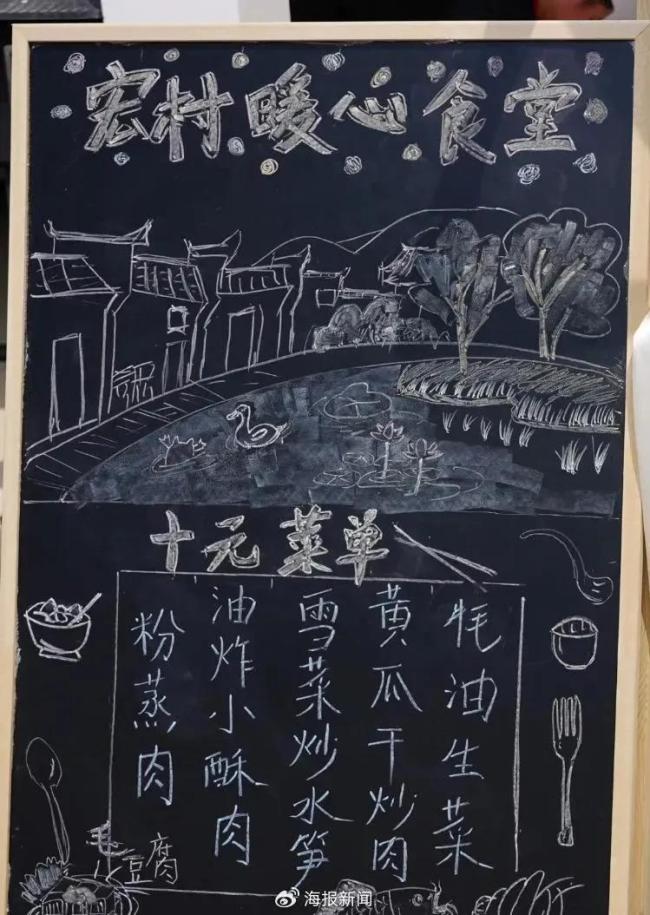 宏村暖心食堂
十元菜单
牦油生菜
黄瓜干炒肉
雪菜炒水笋
油炸小酥肉
粉蒸肉
毛豆腐
海报新闻